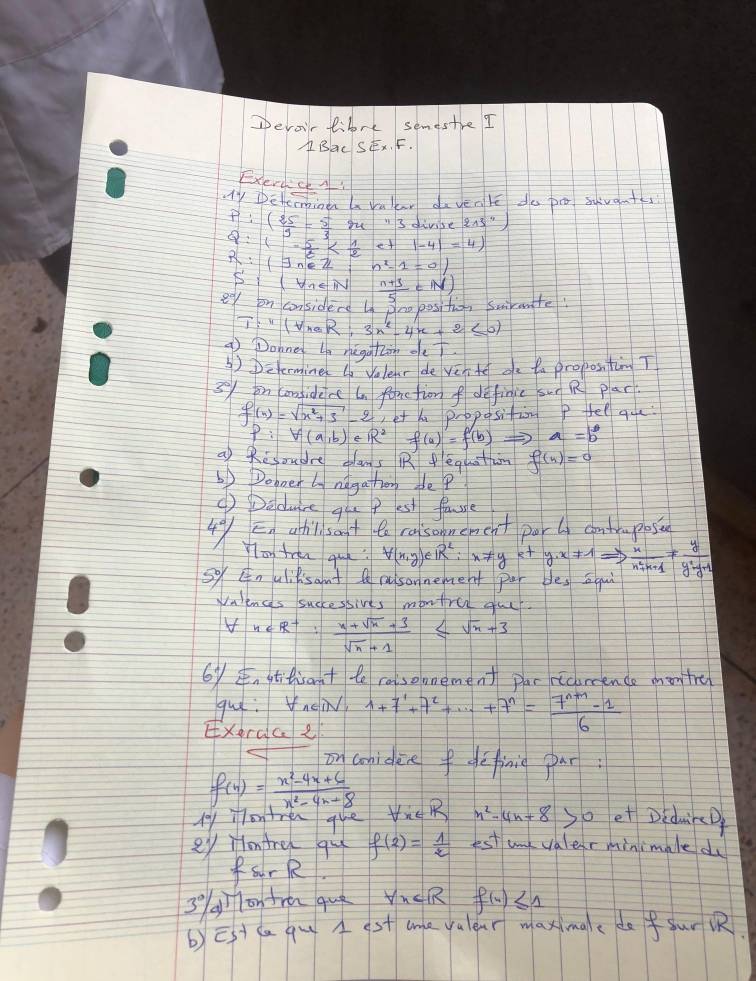 Devoir libre semestre I
1Bac SEx.F.
Exercice 1:
1°/ Déterminer la valeur de vérité des pro suivantes:
P : ( 25/9 = 5/3 ou "3 divise 213" )
Q : ( -5/2 < 1/2 et |-4| = 4)
R : ( ∃n∈Z n²-1=0)
S : ( ∀n∈IN (n+3)/5 ∈ IN)
2°/ on considère la proposition suivante:
T: " (∀x∈R, 3x²-4x+2≤0)
a) Donner la négation de T.
b) Déterminer la valeur de vérité de la proposition T
3°/ on considère la fonction f définie sur R par:
f(x)=√(x²+3) -2, et la proposition P tel que:
P: ∀(a,b)∈R² f(a)=f(b) ⟹ a=b
a) Résoudre dans R l'équation f(x)=0
b) Donner la négation de P
c) Déduire que P est fausse
4°/ En utilisant le raisonnement par la contraposée
Montrer que: ∀(x,y)∈R²: x≠y et y.x≠1 ⟹ x/(x²+x+1) ≠ y/(y²+y+1)
5°/ En ulilisant le raisonnement par des équi
valences successives montrer que:
∀ x∈R⁺ : (x+√x+3)/(√x+1) ≤ √x+3
6°/ En utilisant le raisonnement par récurrence montrer
que: ∀n∈IN, 1+7¹+7²+...+7ⁿ = (7ⁿ⁺¹-1)/6
Exercice 2:
on conidère f définie par :
f(x) = (x²-4x+6)/(x²-4x+8)
1°/ Montrer que ∀x∈R x²-4x+8>0 et Déduire Df
2°/ Montrer que f(2)=1/2 est une valeur minimale de
f sur R.
3°/ a) Montrer que ∀x∈R f(x)≤1
b) Est ce que 1 est une valeur maximale de f sur R.